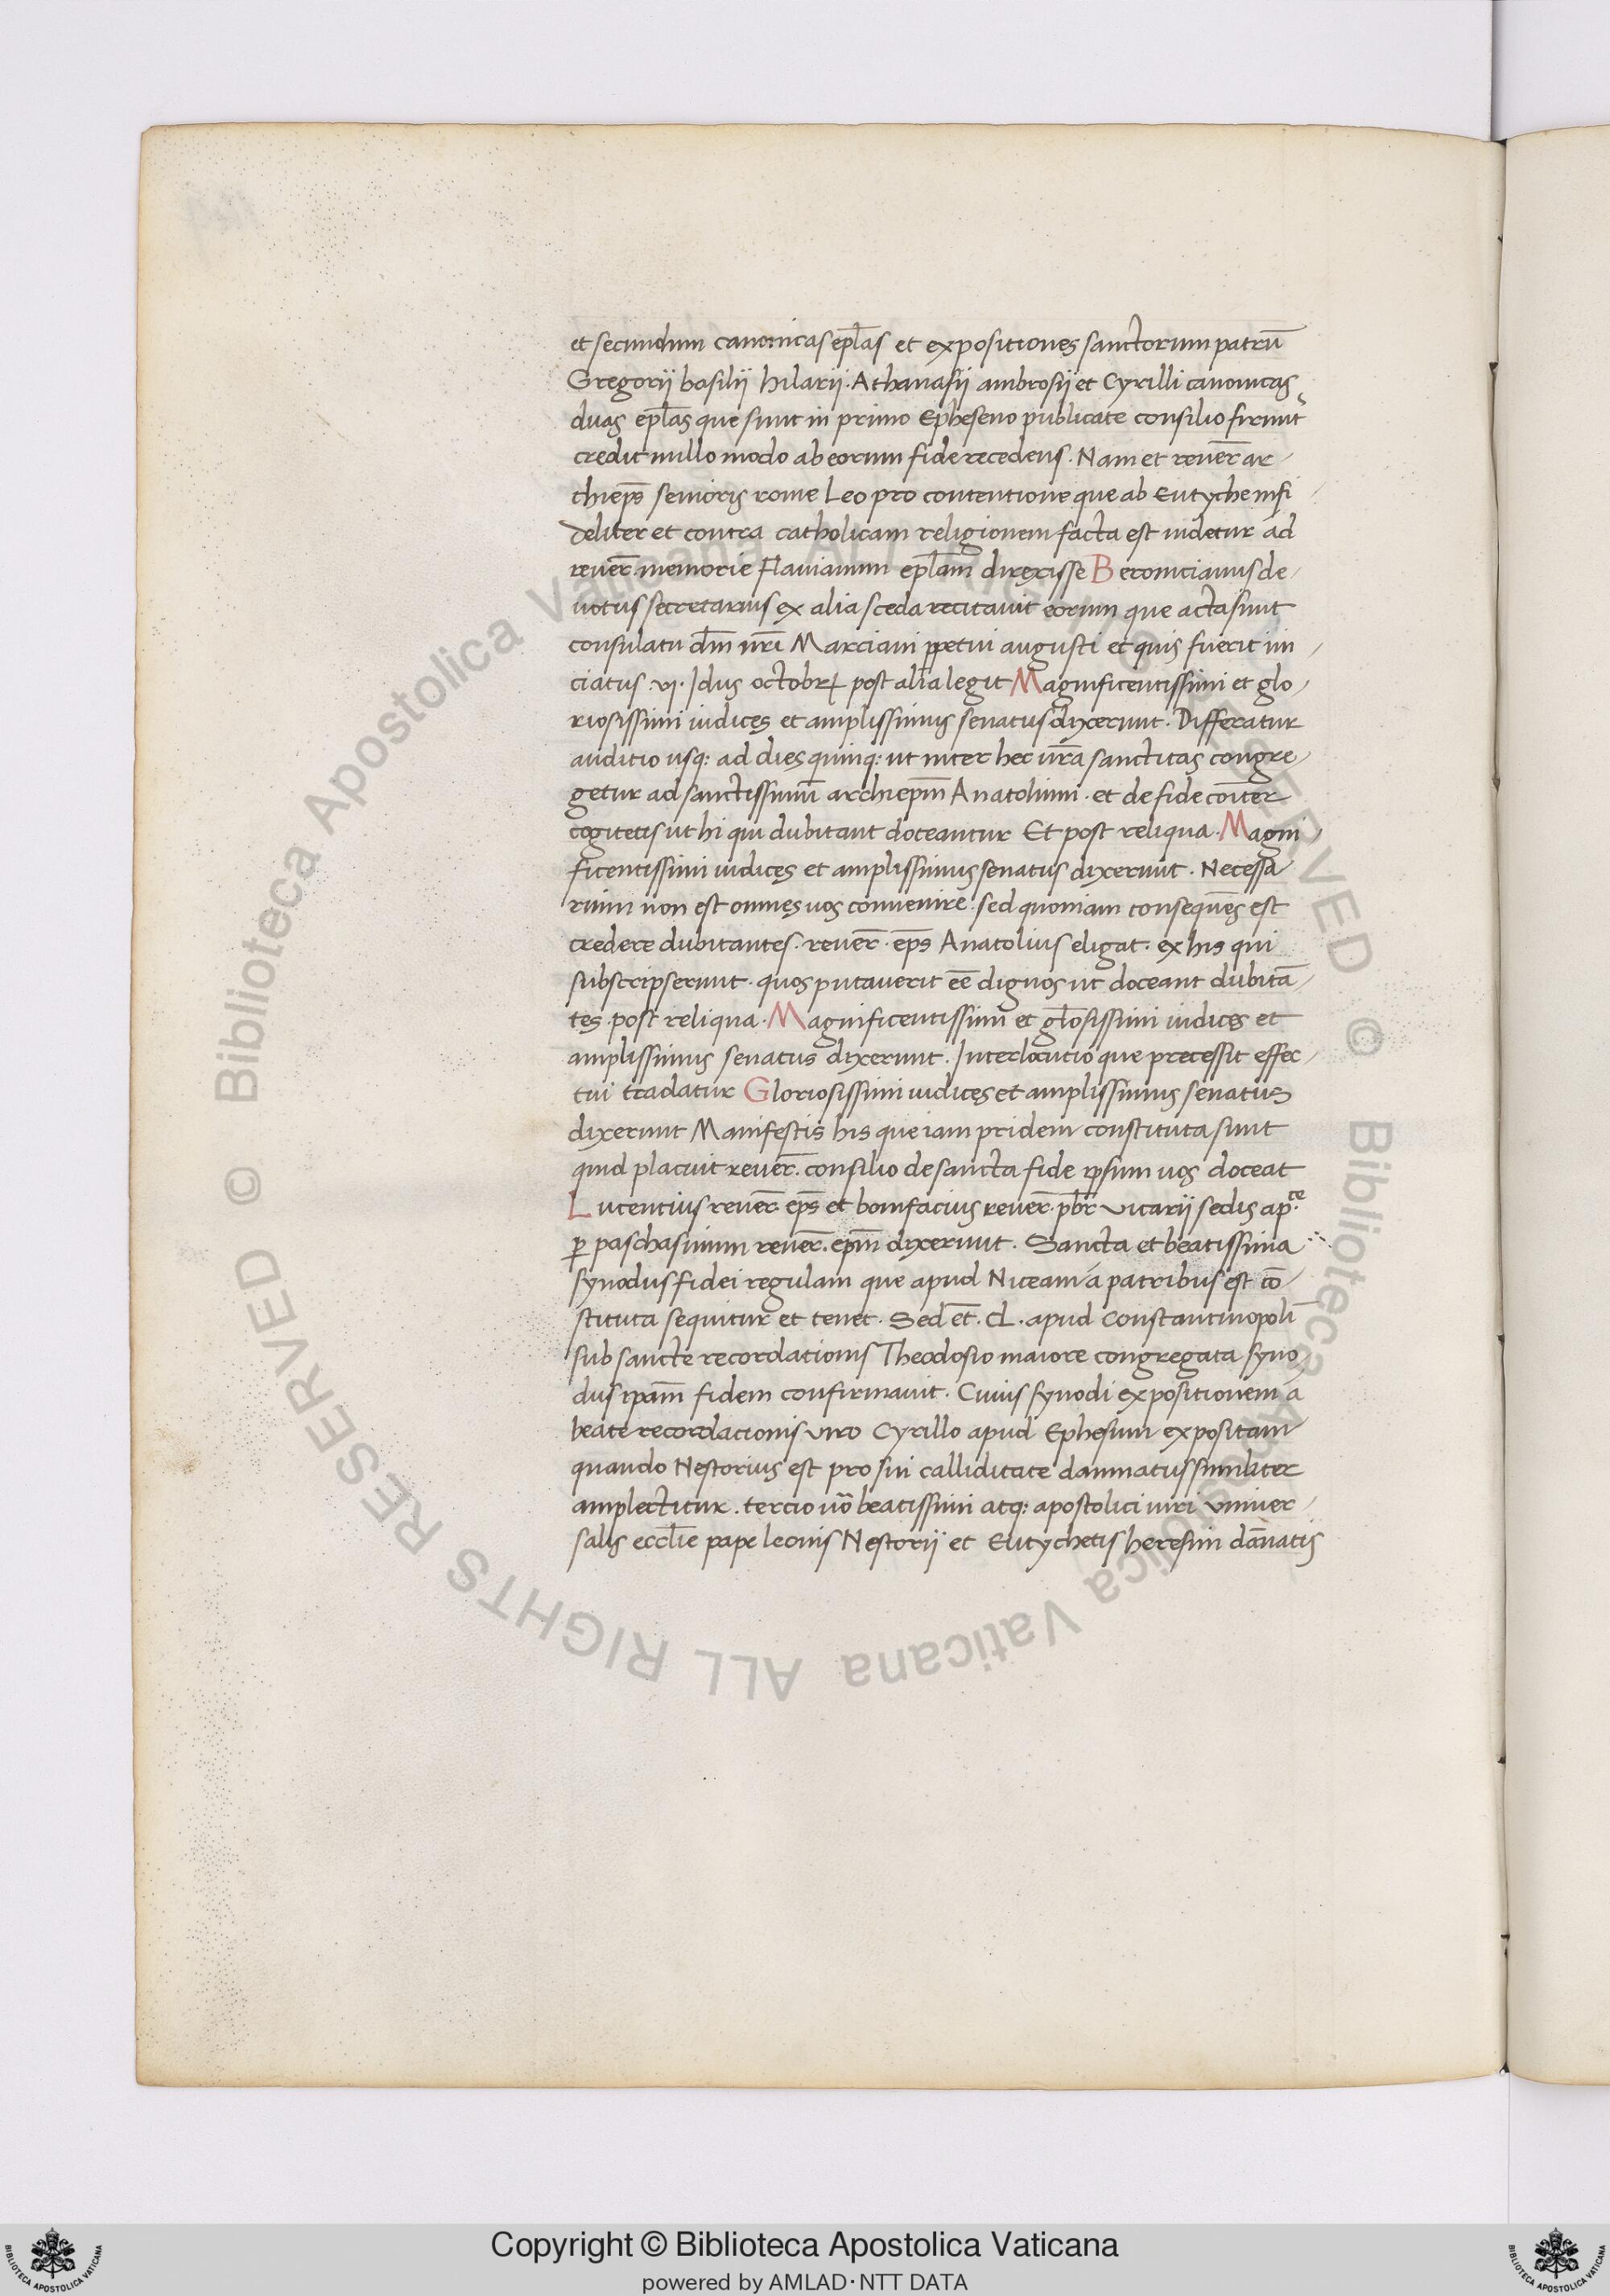 et secundum canonicas epl̄as et expositiones sanctorum patrū
Gregorii basilii hilarii. Athanasii ambrosii et Cyrilli canonicas
duas epl̄as que sunt in primo Epheseno publicate consilio firmit˜
credit nullo modo ab eorum fide recedens. Nam et reuer̄ ar-
chiep̄s senioris rome Leo pro contentione que ab Eutyche infi-
deliter et contra catholicam religionem facta est uidetur ád
reuer̄. memorie Flauianum epl̄am direxisse Beronicianus de-
uotus secretarius ex alia sceda recitauit eorum que acta sunt
consulatu dm̄ nr̄i Marciani ꝑpetui augusti et quis fuerit in-
ciatus. vi. Idus octobrꝭ post alia legit Magnificentissimi et glo-
riosissimi iudices et amplissimus senatus dixerunt. Differatur
auditio usq: ad dies quinq: ut inter hec ur̄a sanctitas congre-
getur ad sanctissimū archiepm̄ Anatolium. et de fide cōiter
cogitetis ut hi qui dubitant doceantur Et post reliqua. Magni-
ficentissimi iudices et amplissimus senatus dixerunt. Necessa-
rium non est omnes uos conuenire. sed quoniam consequēs est
credere dubitantes. reuer̄. ep̄s Anatolius eligat. ex his qui
subscripserunt. quos putauerit ēe dignos ut doceant dubitā-
tes. post reliqua. Magnificentissimi et gl̄osissimi iudices et
amplissimus senatus dixerunt. Interlocutio que precessit effec-
tui tradatur Gloriosissimi iudices et amplissimus senatus
dixerunt Manifestis his que iam pridem constituta sunt
quid placuit reuer̄. consilio de sancta fide ꝑpsum uos doceat
Lucentius reuer̄. ep̄s et bonifacius reuer̄. pb̄r vicarii sedis ap.ce
ꝑ paschasinum reuer̄. epm̄ dixerunt. Sancta et beatissima
synodus fidei regulam que apud Niceam á patribus est cō-
stituta sequitur et tenet. Sed et̄. CL. apud Constantinopolī
sub sancte recordationis Theodosio maiore congregata syno-
dus ipam̄ fidem confirmauit. Cuius synodi expositionem á
beate recordacionis viro Cyrillo apud Ephesum expositam
quando Nestorius est pro sui calliditate damnatus similiter
amplectitur. tercio uō beatissimi atq: apostolici uiri vniuer-
salis eccl̄ie pape leonis Nestorii et Eutychetis heresim dānatis
Copyright © Biblioteca Apostolica Vaticana
powered by AMLAD·NTT DATA
© Biblioteca Apostolica Vaticana ALL RIGHTS RESERVED
© Biblioteca Apostolica Vaticana ALL RIGHTS RESERVED
BIBLIOTECA APOSTOLICA VATICANA
BIBLIOTECA APOSTOLICA VATICANA